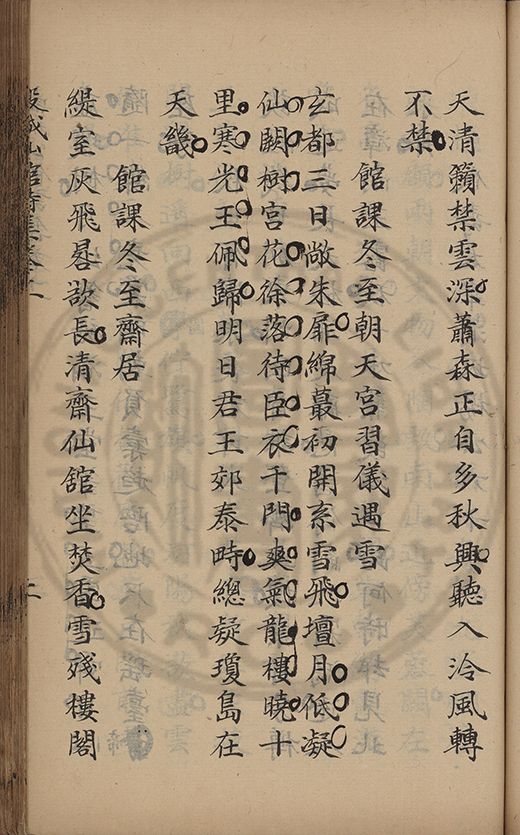 天清籟禁雲深蕭森正自多秋興聽入泠風轉
不禁
館課冬至朝天宮習儀遇雪
玄都三日敞朱扉綿蕞初開糸雪飛壇月低凝
仙闕樹宮花徐落待臣衣千門爽氣龍樓曉十
里寒光王佩歸明日君王郊泰畤總疑瓊島在
天畿
館課冬至齋居
緹室灰飛晷欲長清齋仙舘坐焚香雪殘樓閣